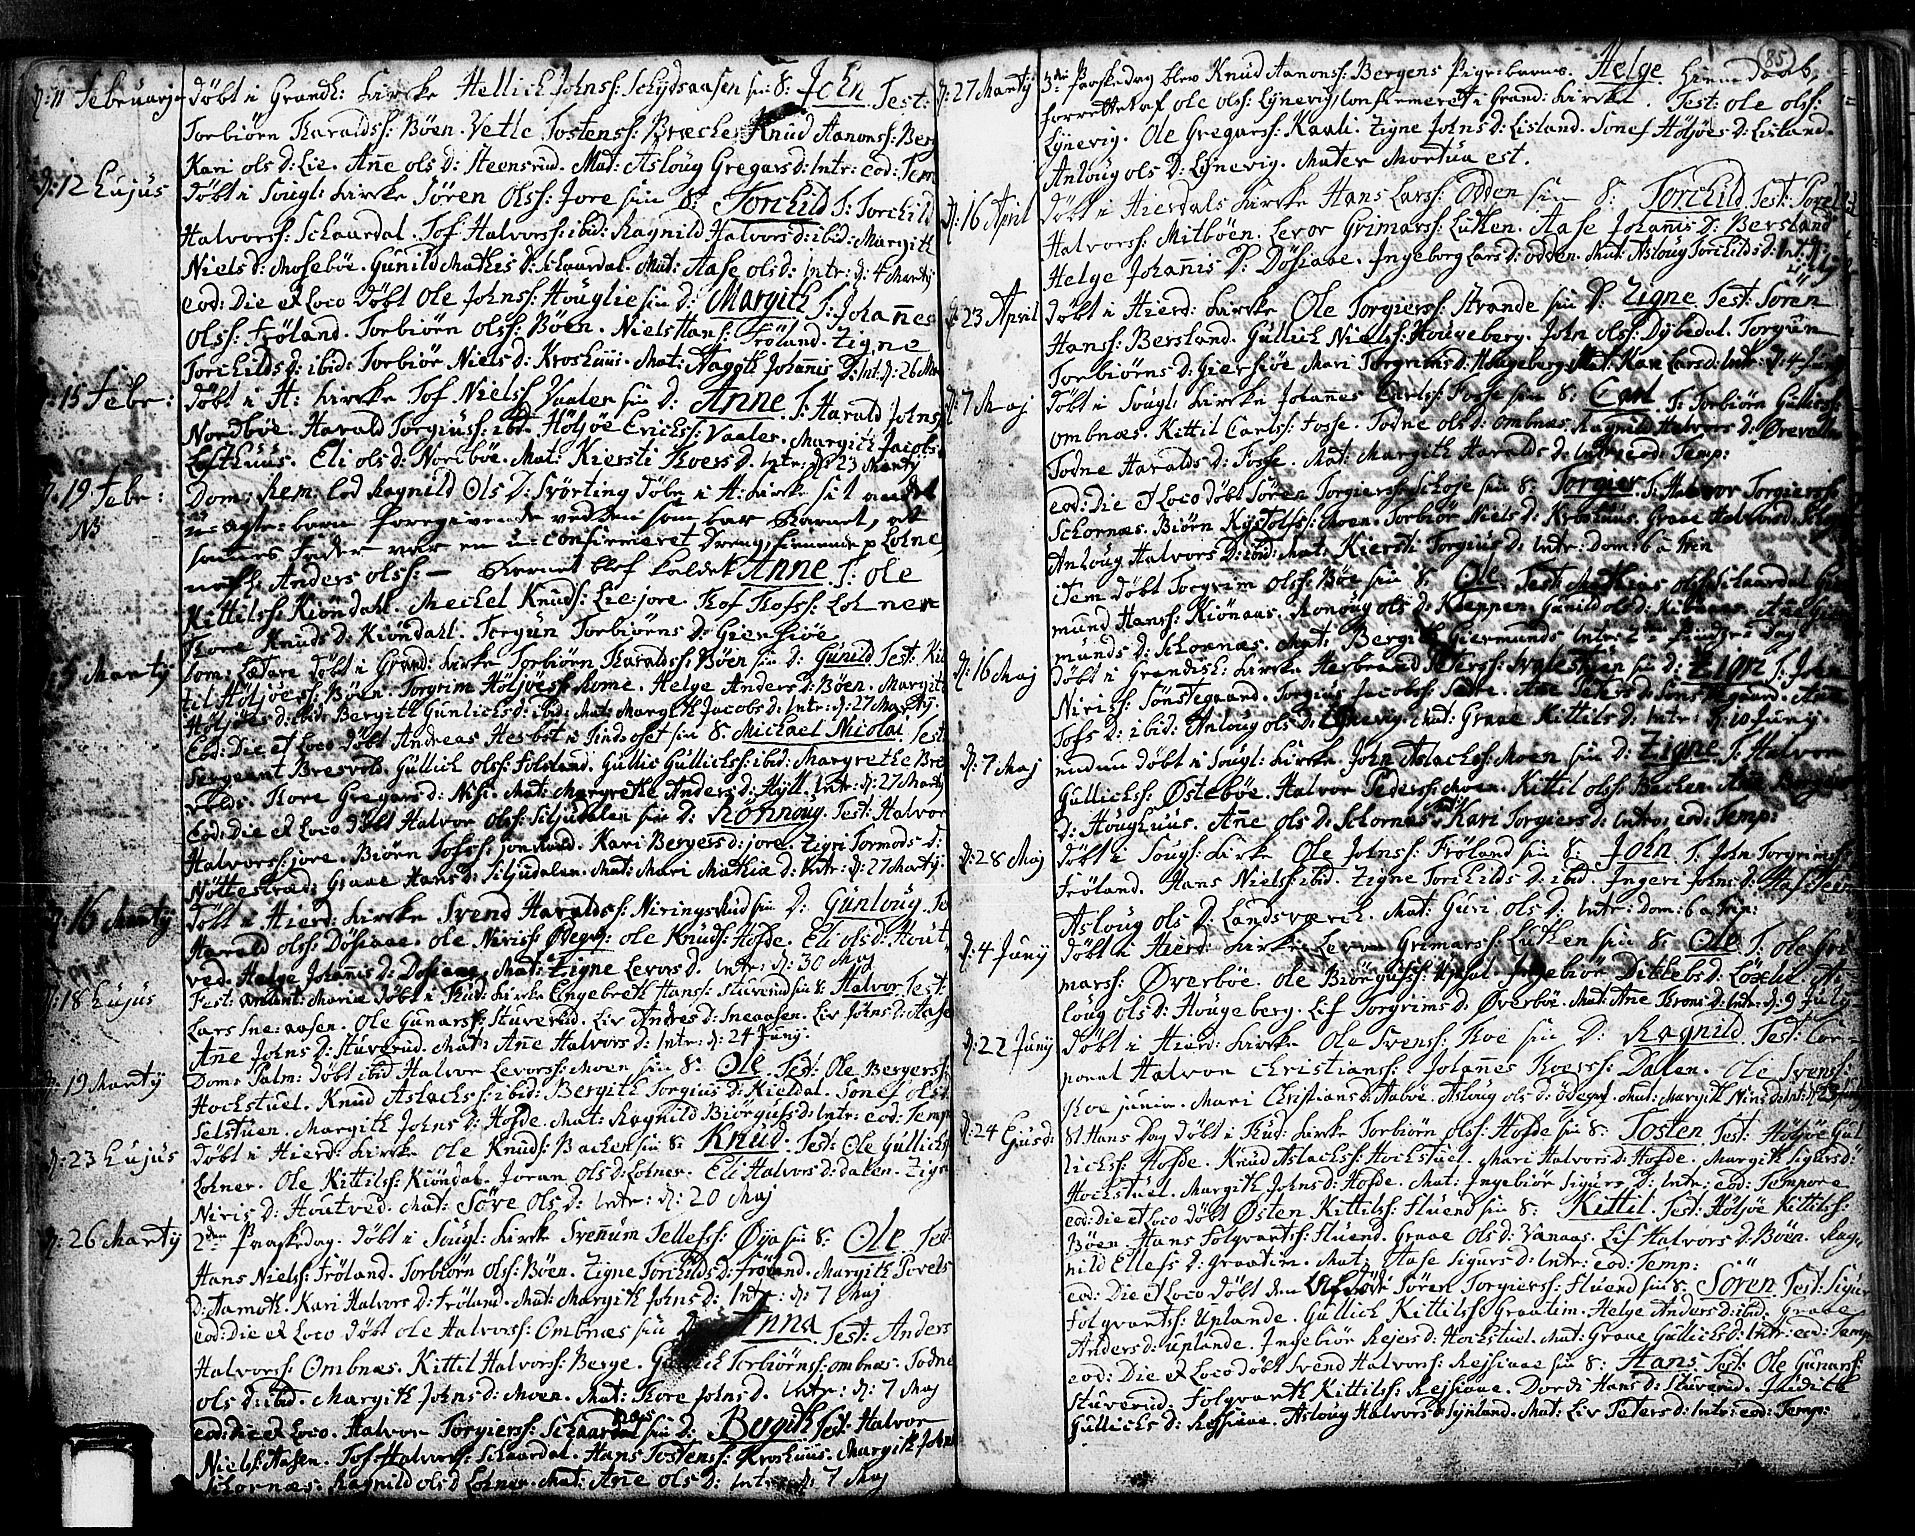 d: 11 Februarij døbt i Grandh: Kirke Hellich Johns: Schydsaasen sin S: John Test:
Torbiörn Haralds: Böen. Vetle Tostens: Bræche Knud Aanons: Berg
Kari ols D: Lie. Anne ols D: Steensrud. Mat: Aslöug Gregars d: Intr: eod: Tem
d: 12 Hujus døbt i Sougl: Kirke Sören Ols: Jore sin S: Torchild T: Torchild
Halvors: Schaardal. Tof Halvors: ibid: Ragnild Halvors d: ibid: Margith
Niels d: Moseböe. Gunild Mathis D: Schaardal. Mat: Aase ols d: Intr: d: 4 Martij
eod: Die et Loco döbt Ole Johns: Höuglie sin D: Margith T: Johannes
Ols: Fröland. Torbiörn ols: Böen. Niels Hans: Fröland. Zigne
Torchilds D: ibid: Torbiör Niels d: Kroshuus. Mat: Johannis D: Int: d: 26 Mar
d: 15 Febr: døbt i H: Kirke Tof Niels: Vaaler sin D: Anne T: Harald Johns:
Nordböe. Harald Torgius: ibd. Höljöe Erichs: Vaaler. Margith Jacobs d
Lofthuus. Eli ols d: Nordböe. Mat: Kiersti Thoers D. Intr: d: 23 Martij
d: 19 Febr: Dom: Rem: lod Ragnild Ols D: Svörting döbe i H: Kirke sit andet
NB u-ægte-barn foregivende ved den som bar Barnet, at
sammes Fader var en u-confirmeret Dreng, tienende p Lohne
nafl: Anders ols: — Barnet blef kaldet Anne T: ole
Kittils: Kiöndahl. Mechel Knuds: Lie-jore. Tof Tofs: Lohner
Thore Knuds D: Kiöndahl. Torgun Torbiörns D: Gierskiöe
d: 5 Martij Dom: Lætare døbt i Grand: Kirke Torbiörn Haralds: Böen sin D: Gunild Test: Kit
til Höljöes: Böen. Torgrim Höljöes: Rome. Helge Anders d: Böen. Margith
Höljöes d: ibid: Bergith Gunlichs D: ibid: Mat: Margith Jacobs d: Intr: d: 27 Martij.
Eod: Die et Loco døbt Andreas Hesbøt i Tindsoset sin S: Michael Nicolai Test:
Sergeant Bresvold. Gullich ols: Folsland. Gullic Gullichs: ibid: Margrethe Bres
volds. Thore Gregars d: Mat: Margrethe Anders d: Intr: d: 27 Martij
Eod: Die et Loco døbt Halvor ols: Siljudalen sin D: Rönnoug. Test: Halvor
Halvors: jore. Biörn Tofs: Kari Bergers d: jore. Zigri Tormods d:
Nöttestrad: Graae Hans d: Siljudalen. Mat: Mari Mathis d: Intr: d: 27 Martij.
d: 16 Martij døbt i Hierd: Kirke Svend Haralds: Niringsrud sin D: Gunloug. Te
Harald ols: Dösiaae. ole Niris: Ødegr: ole Knuds: Hofde. Eli ols d: Hout
ved. Helge Johannis D: Dösiaae. Mat: Zigne Levors d. Intr: d: 30 Maj
d: 18 Hujus Fest: annunt: Mariæ døbt i Tud: Kirke Engebreth Hans: Stuverud sin S: Halvor. Test:
Lars Sneaasen. Ole Gunars: Stuverud. Liv Andres D: Sneaasen. Liv Johns D: Aase
Anne Johns D: Stuverud. Mat: Anne Halvors D: Intr: d: 24 Junij.
d: 19 Martij Dom: Palm: døbt ibid Halvor Levors: Moen sin S: Ole Test: Ole Bergers:
Hochstuel. Knud Aslachs: ibid: Bergith Torgius d: Kieldal. Tone ols d:
Selstuen. Margith Johns D: Hofde. Mat: Ragnild Biörgufs D: Intr: eod: Temp
d: 23 Hujus døbt i Hierd: Kirke Ole Knuds: Bachen sin S: Knud. Test: Ole Gullichs
Lohner. Ole Kittils: Kiöndal. Joran Ols D: Lohner. Eli Halvors D: Dalen. Zigne
Niris D: Houtved. Mat: Söre Ols D: Intr: d: 20 Maj
d: 26 Martij 2den Paaskedag. døbt i Sougl: Kirke Svennum Tellefs: Øÿa sin S: Ole Test:
Hans Niels: Fröland. Torbiörn Ols: Böen. Zigne Torchilds d: Fröland. Margith Torels
d: Aamoth. Kari Halvors D: Fröland. Mat: Margith Johns D: Intr: d: 7 Maj
eod: Die et Loco døbt ole Halvors: Ombnæs sin D: Anna Test: Anders
Halvors: Ombnæs. Kittil Halvors: Berge. Gullich Torbiörns: ombnæs. Todne
ols d: ibid. Margith Johns d: Moen. Mat: Thore Johns d. Intr: d: 7 Maj
eod: Die et Loco. Halvor Torgiers: Schaardal sin D: Bergith Test: Halvor
Niels: Aasen. Tof Halvors: Schaardal. Hans Tostens: Kroshuus. Margith Johns
Schornæs: Ragnild ols D Lohner. Mat: Anne ols D: Intr: d: 7 Maj
85
d: 27 Martij 3die Paaskedag blev Knud Aanons: Bergens Pige-barn. Helge hiemedøb
forrettet af ole ols: Lÿnevig, Confirmeret i Grand: Kirke. Test: ole ols:
Lÿnevig. Ole Gregars: Kaali. Zigne Johns D: Lisland. Tone Höljöes D: Lisland.
Anloug ols D: Lÿnevig. Mater Mortua est.
d: 16 April døbt i Hierdals Kirke Hans Lars: Odden sin S: Torchild. Test: Torel
Halvors: Mitböen. Levor Grimars: Lutken. Aase Johannis D: Bersland
Helge Johannis D: Dösiaae. Ingeborg Lars D: Odden. Mat: Asloug Torchilds D: Int: d:
d: 23 April døbt i Hierd: Kirke Ole Torgiers: Strande sin D: Zigne Test: Sören
Hans: Bersland. Gullich Niels: Houveberg. John ols: Dÿbedal. Torgun
Torbiörns D: Gierskiöe Mari Torgrims D: Hougeberg. Mat: Kari Lars d: Intr: d: 4 Junij
d: 7 Maj døbt i Sougl: Kirke Johannes Carls: Fosse sin S: Carl T: Torbiörn Gullichs:
Ombnæs. Kittil Carls: Fosse. Todne ols d: Ombnæs. Ragnild Halvors D: Ørevalle
Todne Haralds D: Fosse. Mat: Margith Haralds D: Intr: eod: Temp:
eod: Die et Loco døbt Sören Torgiers: Schoje sin S: Torgier. T: Halvor Torgiers:
Schornæs. Biörn Kÿstolfs: Moen. Torbiör Niels D: Kroshuus. Graae Halvors d: Schoje
Anloug Halvors D: ibid: Mat: Kiersti Torgius D: Intr: Dom: 6 a Trin
item døbt Torgrim ols: Böe sin S: Ole. Test: Mathias ols: Schaardal Gier
mund Hans: Kiönaas. Ronoug ols D: Kleppen. Gunild ols D: Kiönaas. Anne Gier
munds D: Schornæs. Mat: Bergith Giermunds Intr: 2den Pindse-Dag
d: 16 Maj døbt i Grandsh: Kirke Herbrand Peters: Sÿlestuen sin D: Zigne T: John
Niris: Sönstegaard. Torgius Jacobs: Anne Peters d: Sönstegaard. Anne
Tofs D: ibid: Anloug ols D: Lÿnevig. Mat: Graae Kittils D: Intr: d: 10 Junij.
d: 7 Maj endnu døbt i Sougl: Kirke John Aslachs: Moen sin D: Zigne. T: Halvor
Gullichs: Østeböe. Halvor Peders: Moen. Kittil ols: Bachen. Anne
D: Houghuus. Ane ols D: Schornæs. Mat: Kari Torgiers D: Intr: eod: Temp:
d: 28 Maj døbt i Sougl: Kirke Ole Johns: Fröland sin S: John T: John Torgrims:
Fröland. Hans Niels: ibid. Zigne Torchilds D: ibid. Ingeri Johns D: Haslesteen
Asloug Ols D: Landsværch. Mat: Guri Ols D: Intr: dom: 6 a Trin:
d: 4 Junij døbt i Hierd: Kirke Levor Grimars: Lutken sin S: Ole T: ole Gri
mars: Øverböe. ole Biörgufs: Upsal. Ingebiör Ditlebs D: Löxlie. As
loug ols D: Hougeberg. Lif Torgrims D: Øverböe. Mat: Ane Throns D: Intr: d: 9 Julij
d: 22 Junij døbt i Hierd: Kirke Ole Svens: Thoe sin D: Ragnild. Test: Cor-
poral Halvor Christians: Johannes Thoers: Dalen. Ole Svens:
Thoe junior. Mari Christians D: Aabö. Asloug ols d: Ödegrd. Mat: Margith Niris D: Int: d: 23 Julij
d: 24 Ejusd: St Hans Dag døbt i Tud: Kirke Torbiörn ols: Hofde sin S: Tosten Test: Höljöe Gul
lichs: Hofde. Knud Aslachs: Hochstuel. Mari Halvors D: Hofde. Margith Sigurs D:
Hochstuel. Margith Johns D: Hofde. Mat: Ingebiör Sigurs D: Intr: eod: Tempore
eod: Die et Loco døbt Østen Kittils: Fluend sin S: Kittil. Test: Höljöe Kittils:
Böen. Hans Folqvarts: Fluend. Graae Ols D: Vanaas. Lif Halvors D: Böen. Rag-
nild Ellefs D: Graatim. Mat: Aase Sigurs D: Intr: eod: Temp:
eod: Die et Loco døbt den Afdöde Sören Torgiers: Fluend sin S: Sören Test: Sigur
Folqvarts: Uplande. Gullich Kittils: Graatim. Helge Anders D: ibid. Graae
Anders D: uplande. Ingebiör Rejers D: Hochstuel. Mat: Graae Gullichs D: Intr: eod: Temp
eod: Die et Loco døbt Svend Halvors: Rejsiaae sin S: Hans Test: Ole Gunars:
Stuverud. Folqvarth Kittils: Rejsiaae. Dordi Hans D: Stuverud. Judith
Gullichs D: Rejsiaae. Asloug Halvors D: Sÿnland. Mat: Liv Peters D: Intr: eod: Temp: